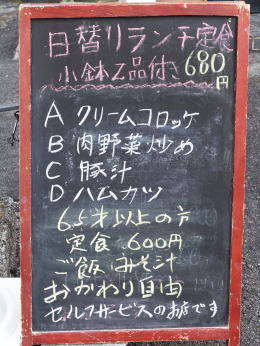 日替リランチ定食
小鉢2品付き680円
A クリームコロッケ
B 肉野菜炒め
C 豚汁
D ハムカツ
65才以上の方
定食 600円
ご飯 みそ汁
おかわり自由
セルフサービスのお店です